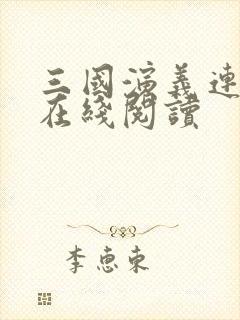 三國演義連
在綫閱讀
李惠東